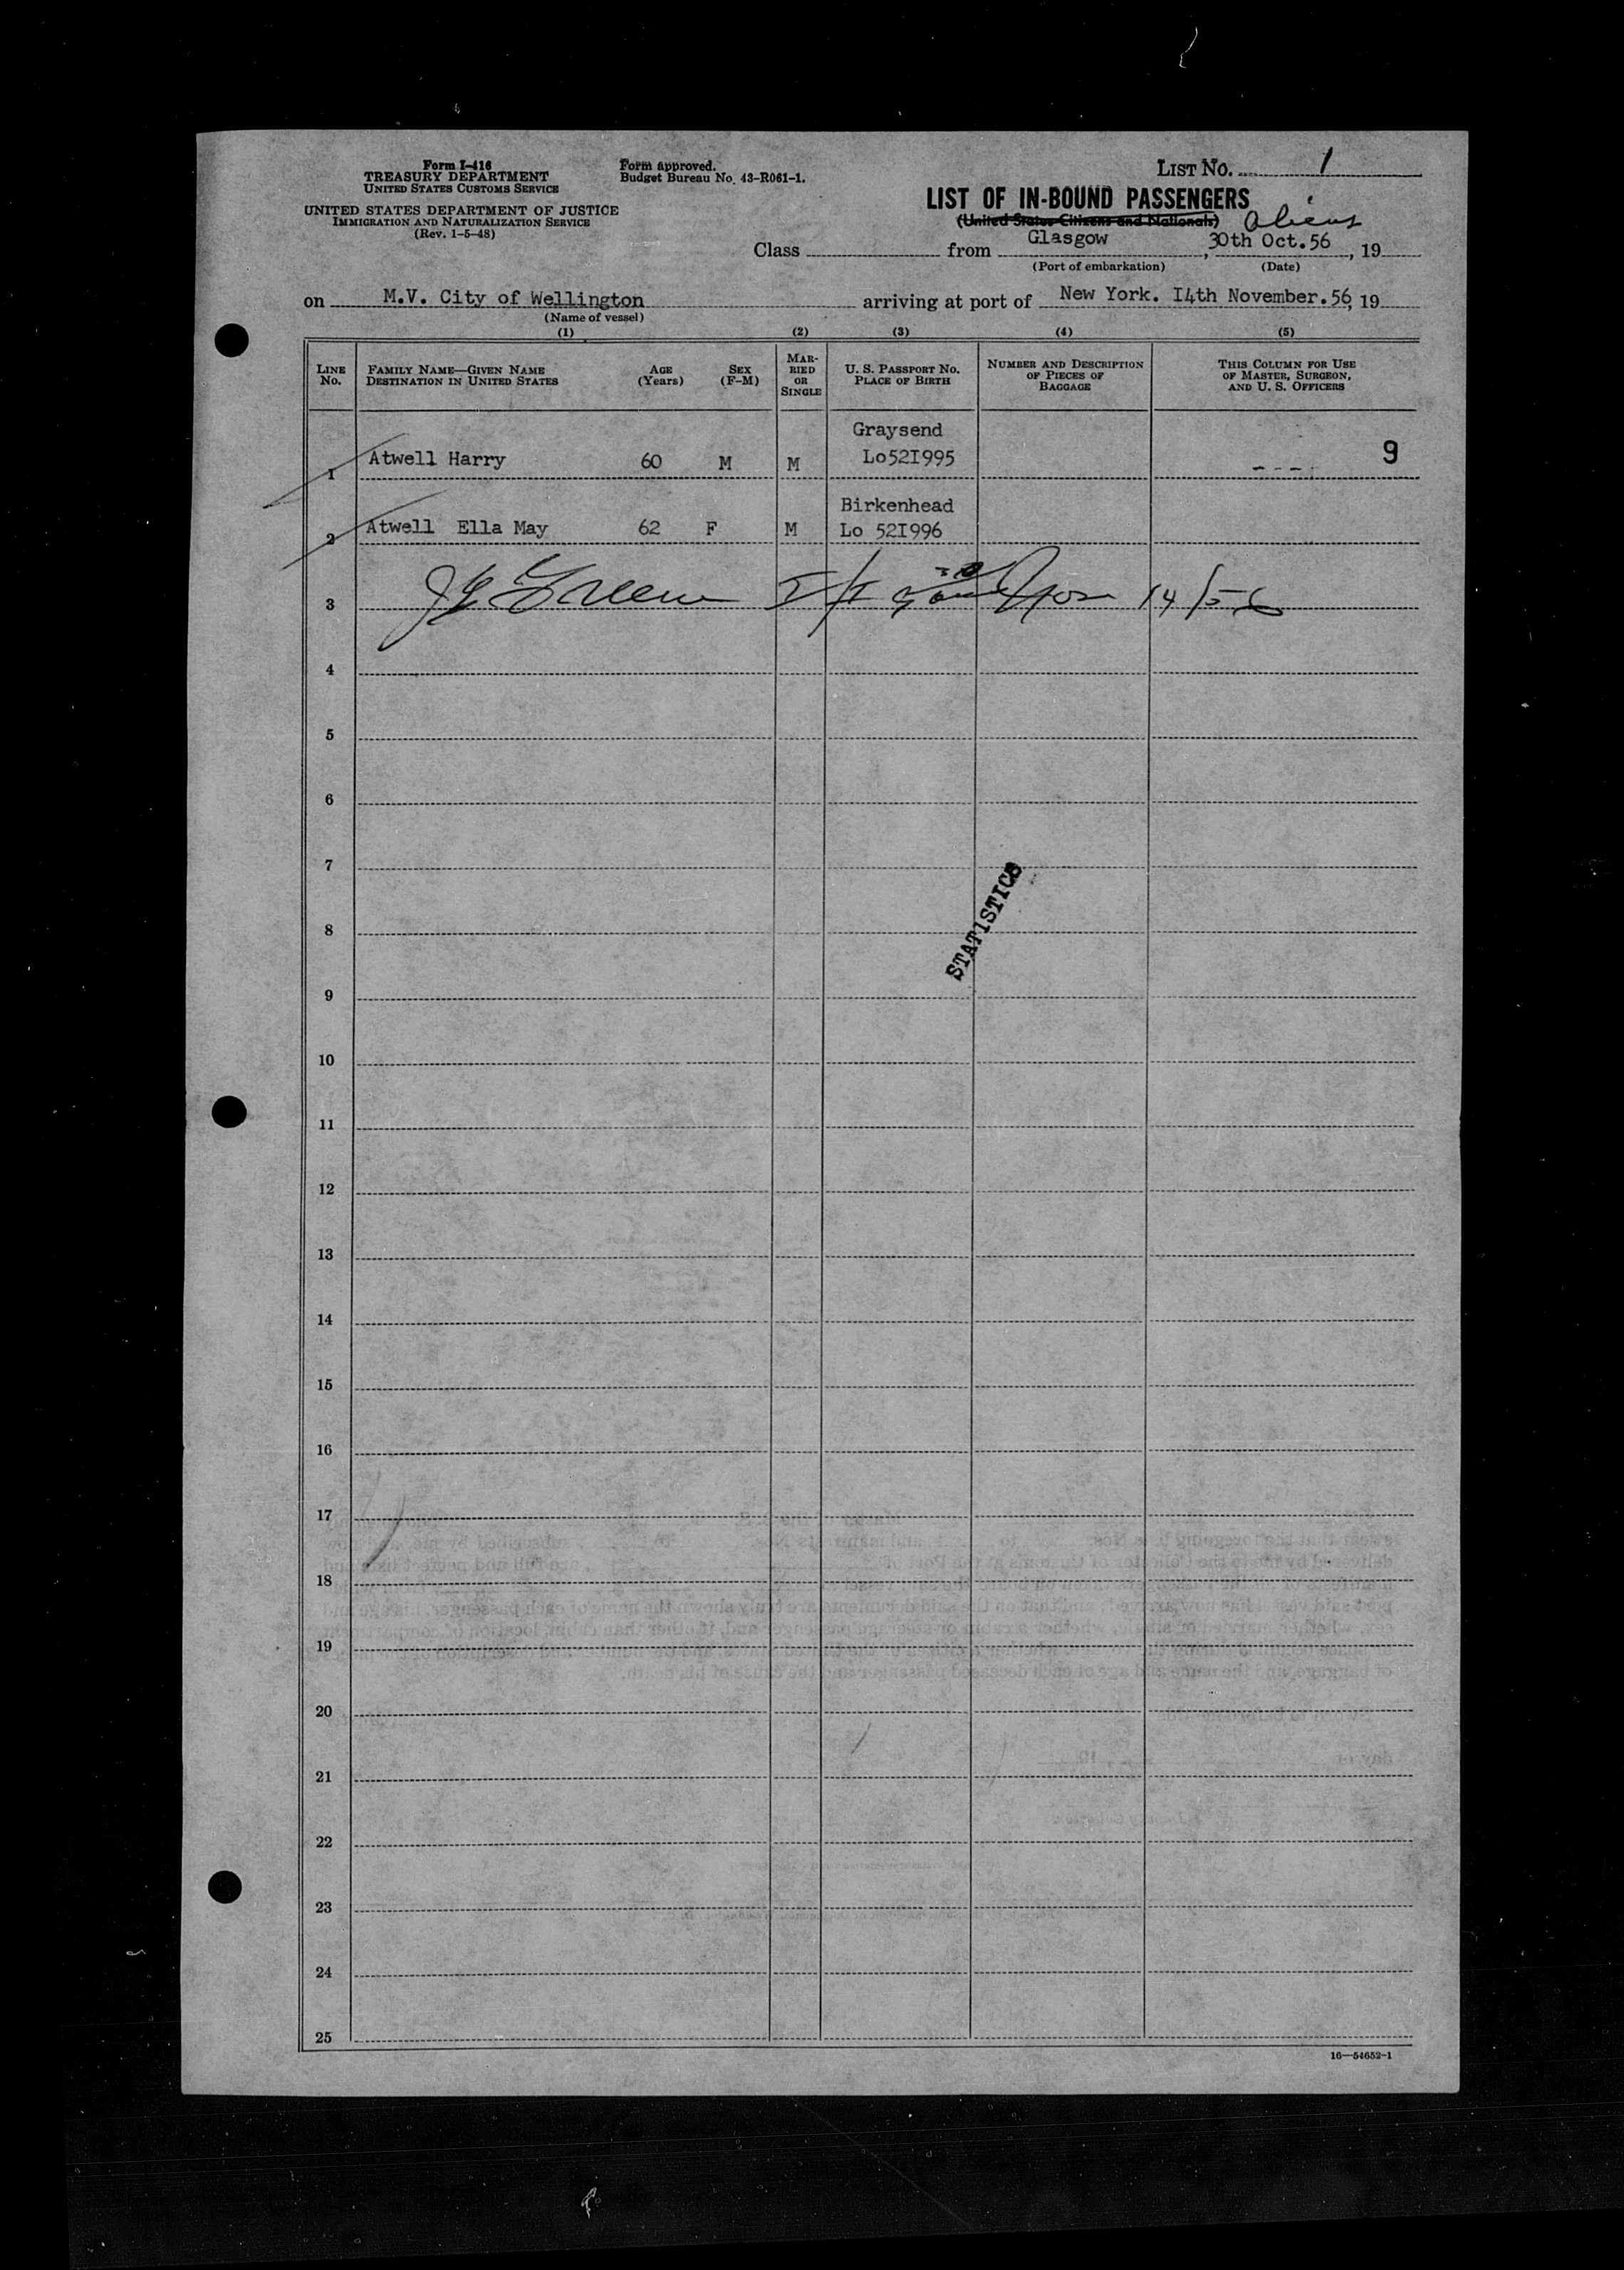 Form I-416
TREASURY DEPARTMENT
UNITED STATES CUSTOMS SERVICE
UNITED STATES DEPARTMENT OF JUSTICE
IMMIGRATION AND NATURALIZATION SERVICE
(Rev. 1-5-48)
Form approved.
Budget Bureau No. 43-R061-1.
LIST NO. 1
LIST OF IN-BOUND PASSENGERS
(United States Citizens and Nationals) Aliens
Class from Glasgow, 30th Oct. 56, 19
(Port of embarkation) (Date)
on M.V. City of Wellington arriving at port of New York. I4th November. 56, 19
(Name of vessel)
(1) (2) (3) (4) (5)
LINE No. FAMILY NAME—GIVEN NAME DESTINATION IN UNITED STATES AGE (Years) SEX (F-M) MARRIED OR SINGLE U. S. PASSPORT NO. PLACE OF BIRTH NUMBER AND DESCRIPTION OF PIECES OF BAGGAGE THIS COLUMN FOR USE OF MASTER, SURGEON, AND U. S. OFFICERS
Graysend
1 Atwell Harry 60 M M Lo52I995 9
Birkenhead
2 Atwell Ella May 62 F M Lo 52I996
3 Greene 14/56
4
5
6
7
8
STATISTICS
9
10
11
12
13
14
15
16
17
18
19
20
21
22
23
24
25
16—54652-1